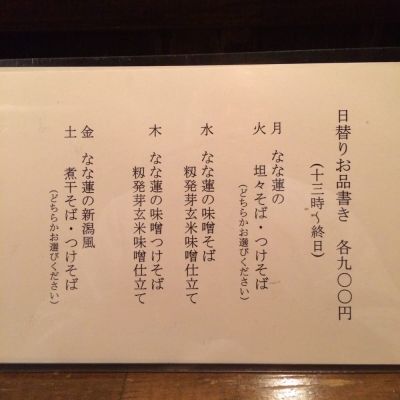 日替りお品書き 各九〇〇円
(十三時〜終日)
月 なな蓮の
火 坦々そば・つけそば
(どちらかお選びください)
水 なな蓮の味噌そば
籾発芽玄米味噌仕立て
木 なな蓮の味噌つけそば
籾発芽玄米味噌仕立て
金 なな蓮の新潟風
土 煮干そば・つけそば
(どちらかお選びください)